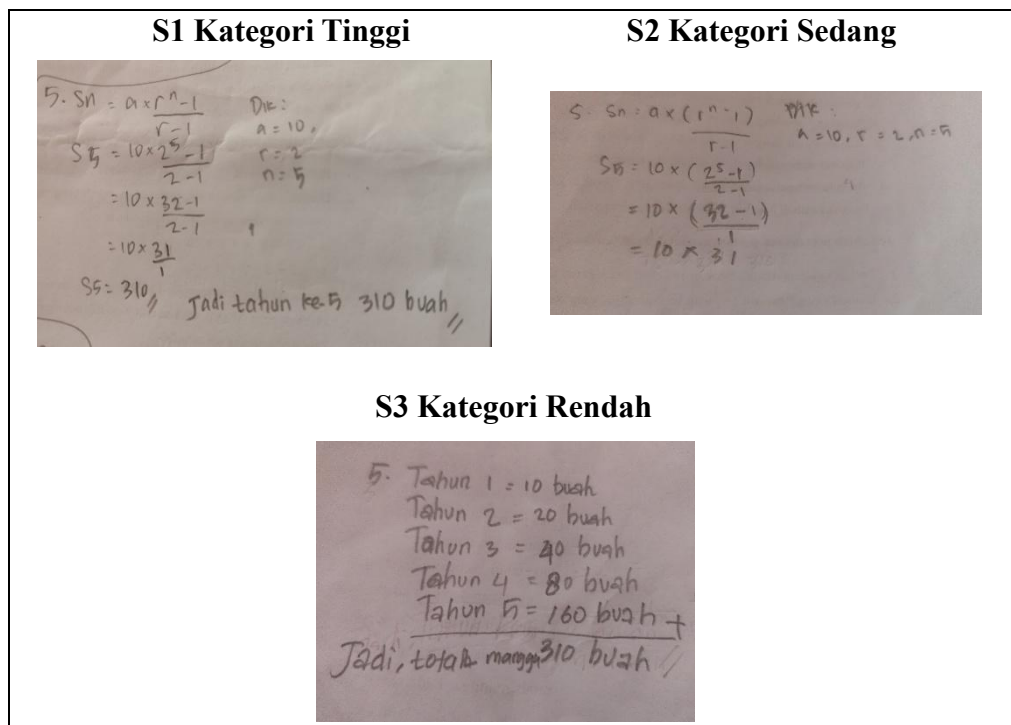 S1 Kategori Tinggi
5. Sn = a x r^n - 1
r - 1
Dik:
a = 10,
r = 2
n = 5
S5 = 10 x 2^5 - 1
2 - 1
= 10 x 32 - 1
2 - 1
= 10 x 31
1
S5 = 310 //
Jadi tahun ke-5 310 buah //
S2 Kategori Sedang
5. Sn = a x (r^n - 1)
r - 1
DIK :
a = 10, r = 2, n = 5
S5 = 10 x (2^5 - 1)
2 - 1
= 10 x (32 - 1)
1
= 10 x 31
S3 Kategori Rendah
5. Tahun 1 = 10 buah
Tahun 2 = 20 buah
Tahun 3 = 40 buah
Tahun 4 = 80 buah
Tahun 5 = 160 buah +
Jadi, total mangga 310 buah //